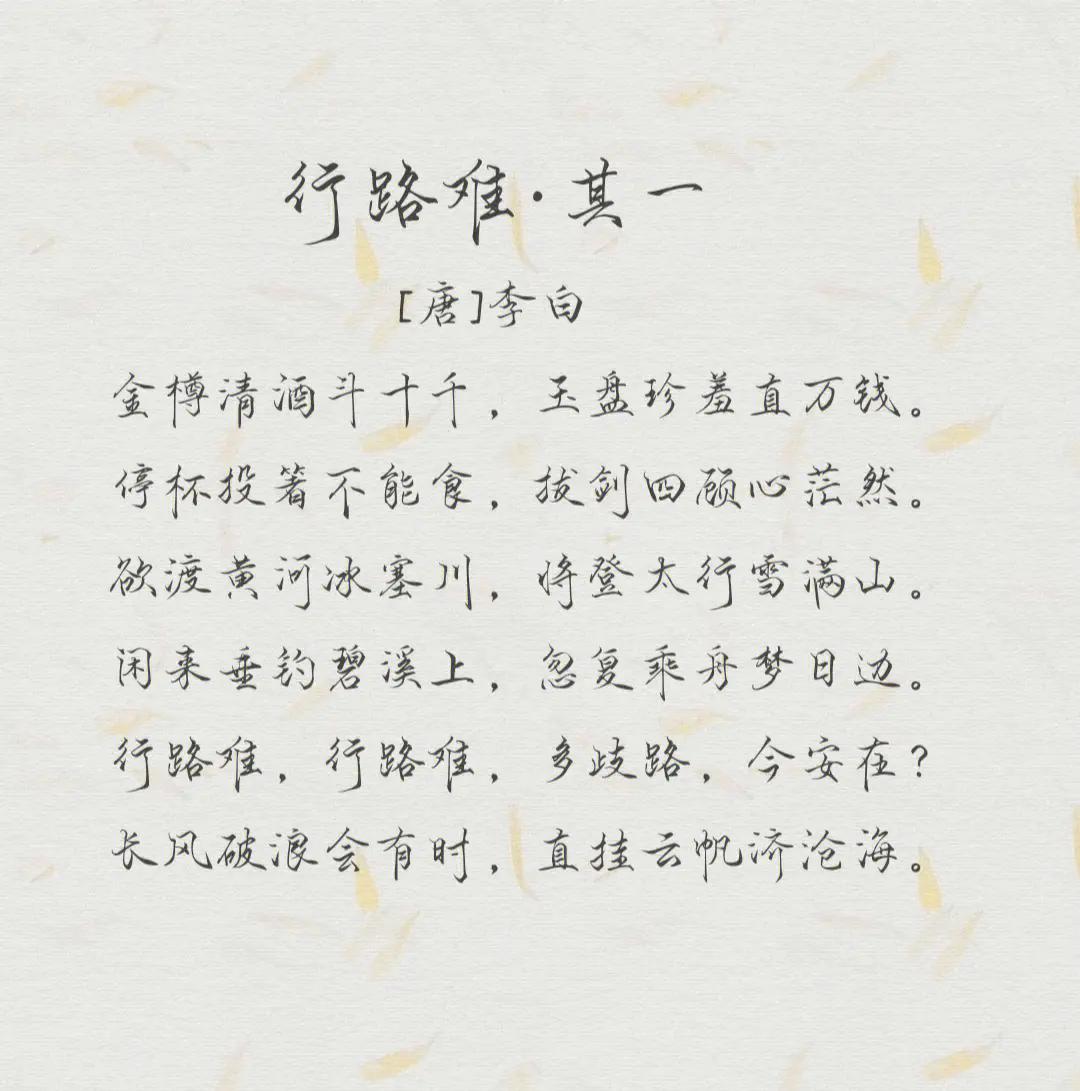 行路难·其一
[唐]李白
金樽清酒斗十千，玉盘珍羞直万钱。
停杯投箸不能食，拔剑四顾心茫然。
欲渡黄河冰塞川，将登太行雪满山。
闲来垂钓碧溪上，忽复乘舟梦日边。
行路难，行路难，多歧路，今安在？
长风破浪会有时，直挂云帆济沧海。